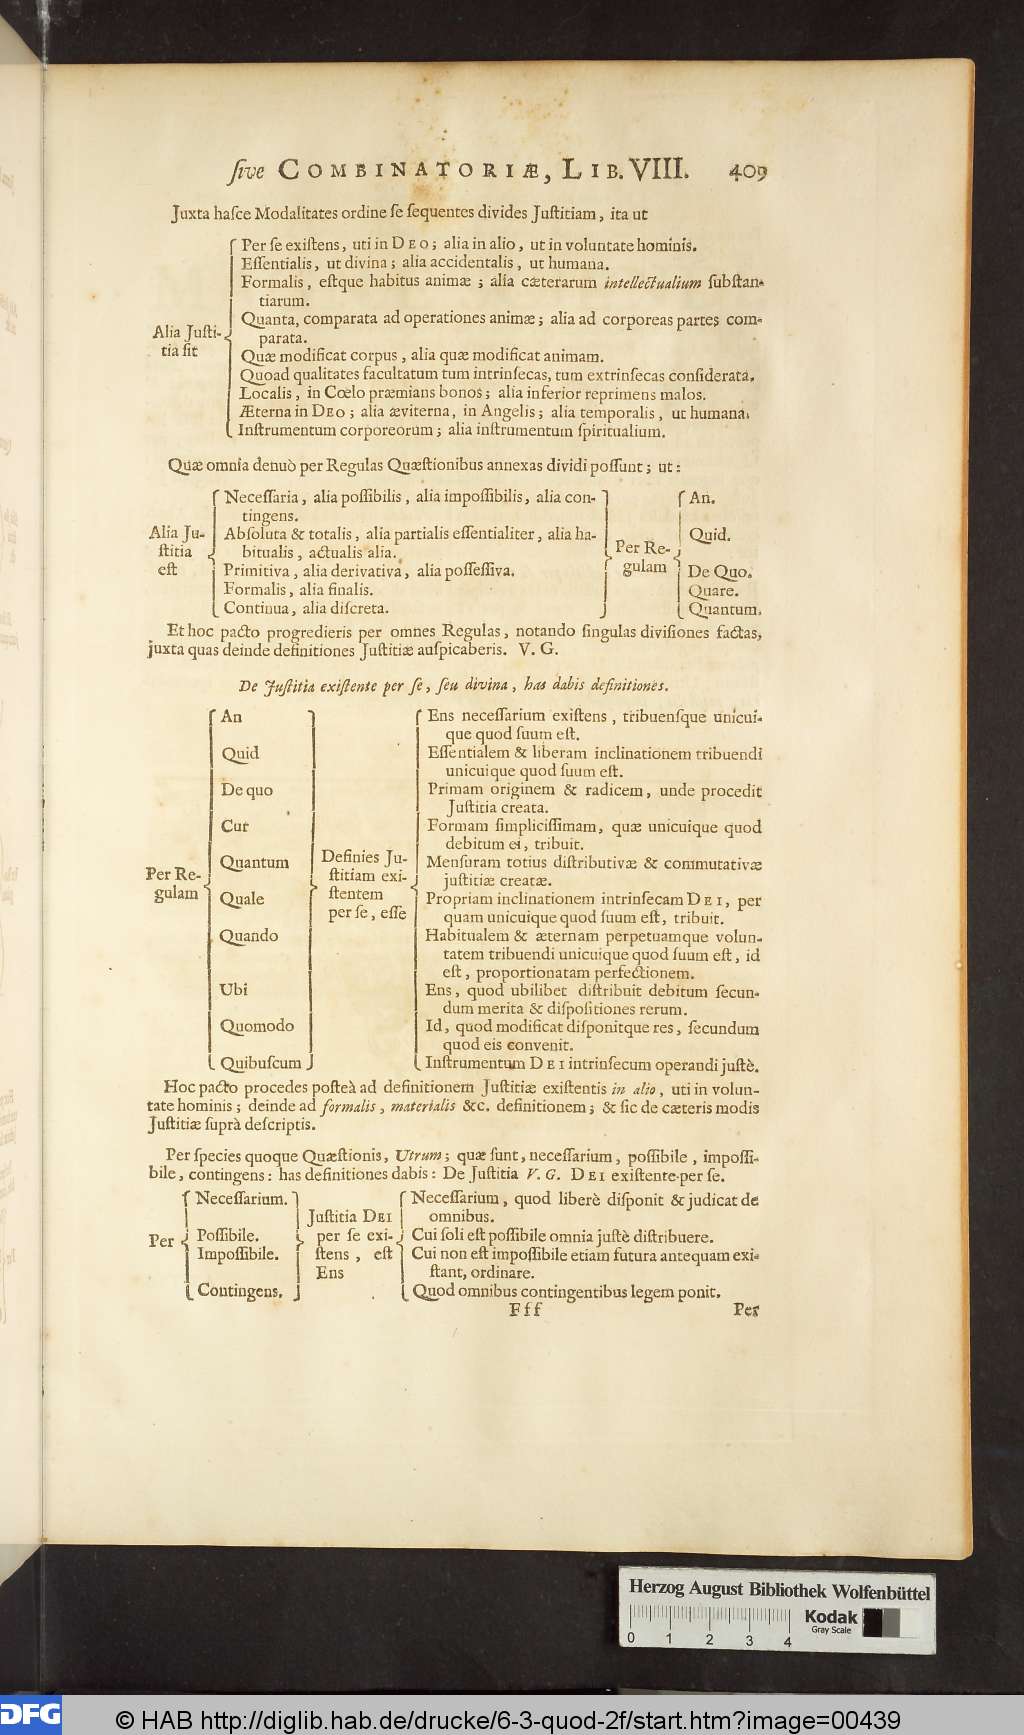 ſive COMBINATORIÆ, LIB. VIII. 409
Juxta haſce Modalitates ordine ſe ſequentes divides Juſtitiam, ita ut
Per ſe exiſtens, uti in DEO; alia in alio, ut in voluntate hominis.
Eſſentialis, ut divina; alia accidentalis, ut humana.
Formalis, eſtque habitus animæ; alia cæterarum intellectualium ſubſtan-
tiarum.
Quanta, comparata ad operationes animæ; alia ad corporeas partes com-
parata.
Alia Juſti-
tia ſit
Quæ modificat corpus, alia quæ modificat animam.
Quoad qualitates facultatum tum intrinſecas, tum extrinſecas conſiderata.
Localis, in Cœlo præmians bonos; alia inferior reprimens malos.
Æterna in DEO; alia æviterna, in Angelis; alia temporalis, ut humana.
Inſtrumentum corporeorum; alia inſtrumentum ſpiritualium.
Quæ omnia denuò per Regulas Quæſtionibus annexas dividi poſſunt; ut:
Alia Ju-
ſtitia
eſt
Neceſſaria, alia poſſibilis, alia impoſſibilis, alia con-
tingens.
Abſoluta & totalis, alia partialis eſſentialiter, alia ha-
bitualis, actualis alia.
Primitiva, alia derivativa, alia poſſeſſiva.
Formalis, alia finalis.
Continua, alia diſcreta.
Per Re-
gulam
An.
Quid.
De Quo.
Quare.
Quantum.
Et hoc pacto progredieris per omnes Regulas, notando ſingulas diviſiones factas,
juxta quas deinde definitiones Juſtitiæ auſpicaberis. V. G.
De Juſtitia exiſtente per ſe, ſeu divina, has dabis definitiones.
Per Re-
gulam
An
Quid
De quo
Cur
Quantum
Quale
Quando
Ubi
Quomodo
Quibuſcum
Definies Ju-
ſtitiam exi-
ſtentem
per ſe, eſſe
Ens neceſſarium exiſtens, tribuenſque unicui-
que quod ſuum eſt.
Eſſentialem & liberam inclinationem tribuendi
unicuique quod ſuum eſt.
Primam originem & radicem, unde procedit
Juſtitia creata.
Formam ſimpliciſſimam, quæ unicuique quod
debitum ei, tribuit.
Menſuram totius diſtributivæ & commutativæ
juſtitiæ creatæ.
Propriam inclinationem intrinſecam DEI, per
quam unicuique quod ſuum eſt, tribuit.
Habitualem & æternam perpetuamque volun-
tatem tribuendi unicuique quod ſuum eſt, id
eſt, proportionatam perfectionem.
Ens, quod ubilibet diſtribuit debitum ſecun-
dum merita & diſpoſitiones rerum.
Id, quod modificat diſponitque res, ſecundum
quod eis convenit.
Inſtrumentum DEI intrinſecum operandi juſtè.
Hoc pacto procedes poſteà ad definitionem Juſtitiæ exiſtentis in alio, uti in volun-
tate hominis; deinde ad formalis, materialis &c. definitionem; & ſic de cæteris modis
Juſtitiæ ſuprà deſcriptis.
Per ſpecies quoque Quæſtionis, Utrum; quæ ſunt, neceſſarium, poſſibile, impoſſi-
bile, contingens: has definitiones dabis: De Juſtitia V. G. DEI exiſtente per ſe.
Per
Neceſſarium.
Poſſibile.
Impoſſibile.
Contingens.
Juſtitia DEI
per ſe exi-
ſtens, eſt
Ens
Neceſſarium, quod liberè diſponit & judicat de
omnibus.
Cui ſoli eſt poſſibile omnia juſtè diſtribuere.
Cui non eſt impoſſibile etiam futura antequam exi-
ſtant, ordinare.
Quod omnibus contingentibus legem ponit.
Fff Per
Herzog August Bibliothek Wolfenbüttel
0 1 2 3 4
Kodak
Gray Scale
DFG
© HAB http://diglib.hab.de/drucke/6-3-quod-2f/start.htm?image=00439